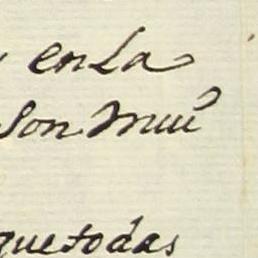 en La
Son muu
que todas